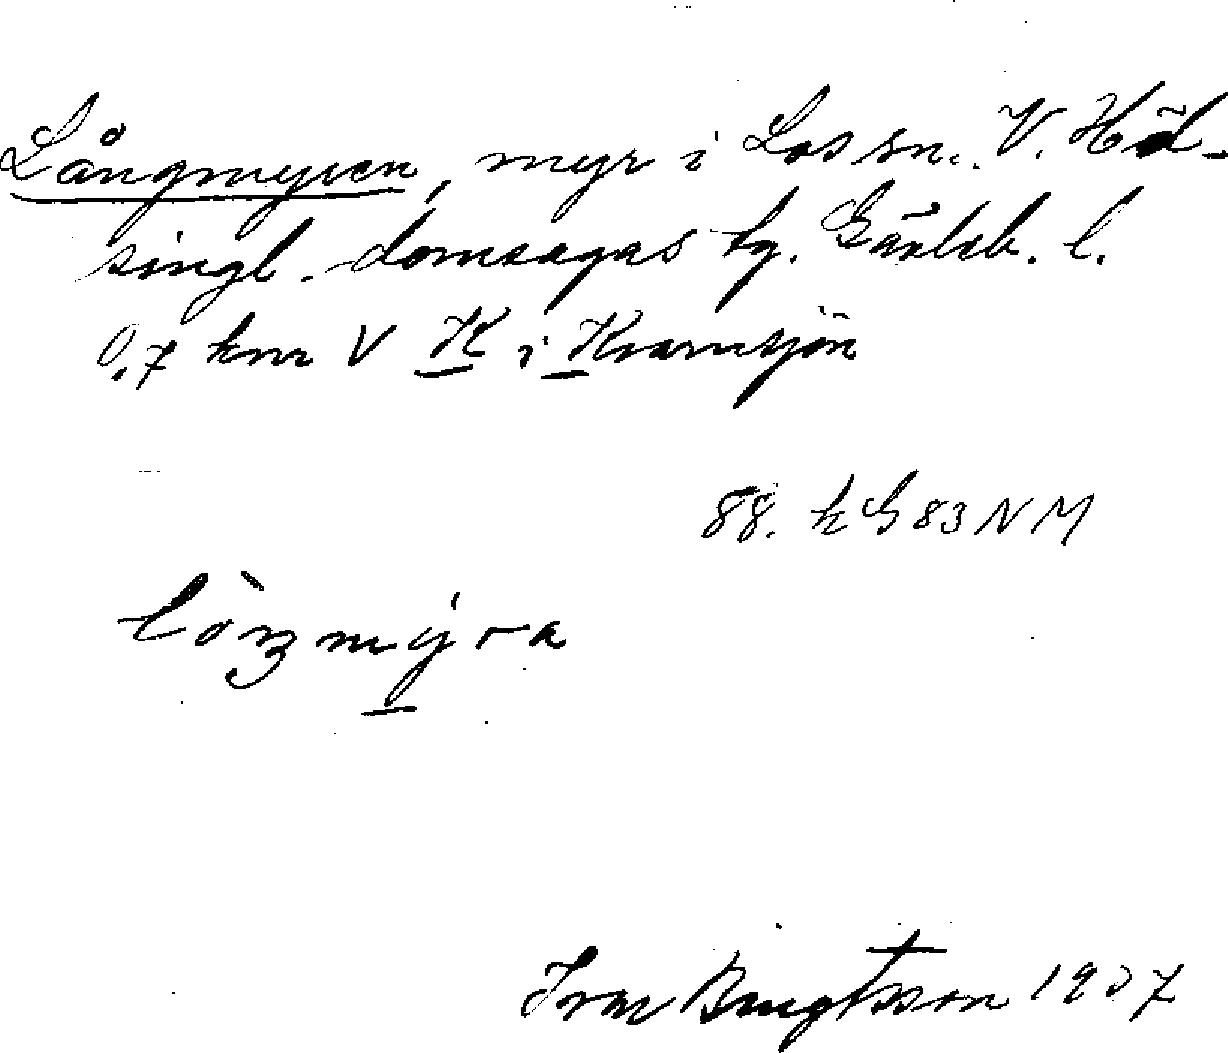 Långmyren, myr i Los sn. V. Häl-
singl. domsagas tg. Gävleb. l.
0,7 km V K i Kvarnsjön
88. k G 83 N M
lòŋmýra
Ivar Bengtsson 1937